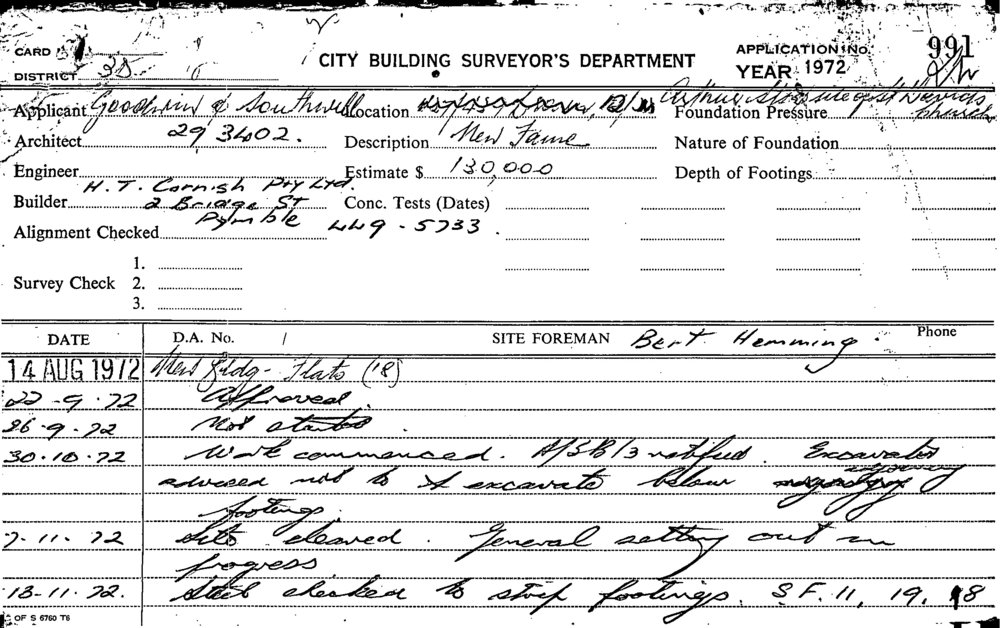 CARD
DISTRICT 35
CITY BUILDING SURVEYOR'S DEPARTMENT
APPLICATION No. 991
YEAR 1972
Applicant Goodwin & Southwell Location Arthur St. side of St Davids church
Foundation Pressure
Architect 29 3402. Description New Nature of Foundation
Engineer Estimate $ 130,000 Depth of Footings
H.T. Cornish Pty Ltd.
Builder 2 Bridge St Conc. Tests (Dates)
Pymble 449-5733.
Alignment Checked
1.
Survey Check 2.
3.
DATE D.A. No. / SITE FOREMAN Bert Hemming. Phone
14 AUG 1972 New Bldg - Flats (18)
22-9-72 Approved.
26-9-72 Not started.
30-10-72 Work commenced. A/SB/3 notified. Excavator
advised not to excavate below adjoining
footings.
7-11-72 Site cleared. General setting out in
progress
13-11-72. Steel checked to strip footings. S.F. 11, 19, 18
OF S 6760 T6